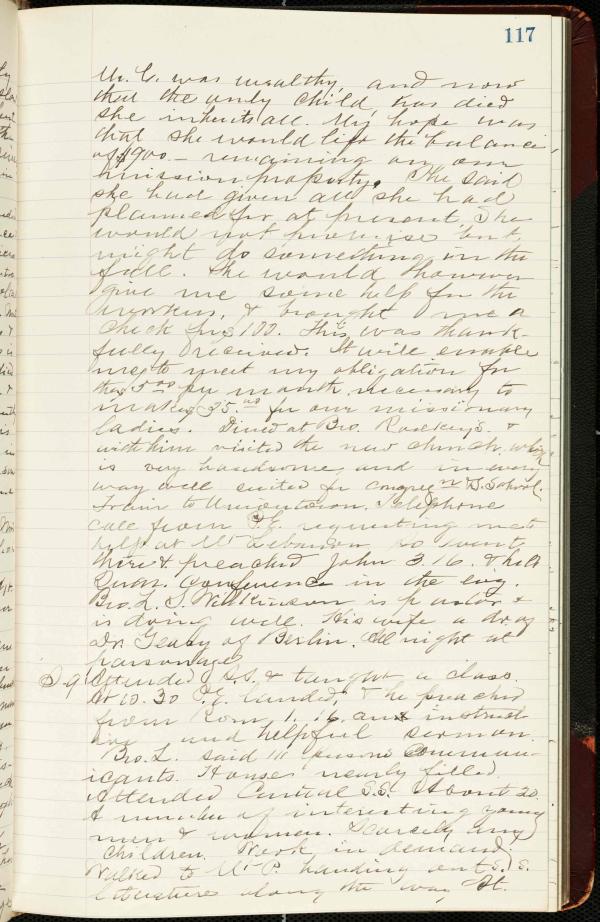 117
M. C. was wealthy, and now
that the only child has died
she inherits all. My hope was
that she would lift the balance
of $900 — remaining on our
mission property. She said
she had given all she had
planned for at present, she
would not promise but
might do something in the
fall. She would however
give me some help for the
workers, & brought me a
check for $100. This was thank-
fully received. It will enable
me to meet my obligation for
the $5 00 per month necessary to
make $35.00 for our missionary
ladies. Dined at Bro. &
with him visited the new church, which
is very handsome and in every
way well suited for congreg'n & S. School.
Train to Uniontown. Telephone
call from P.E. requesting me to
help at Mt Lebanon so went
there & preached John 3.16. & held
Quar. Conference in the evg.
Bro. L. S. Wilkinson is pastor &
is doing well. His wife a of
Dr Geasy of Berlin. All night at
parsonage.
S 9 Attended S.S. & taught a class.
At 10.30 P.E. landed, & he preached
from Rom. 1.16. an instruct-
ive and helpful sermon.
Bro. L. said 111 persons commun-
icants. House nearly filled.
Attended Central S.S. About 20.
A number of interesting young
men & women. Scarcely any
children. Work in demand.
Walked to Mt P. handing out S.S.
literature along the way. At